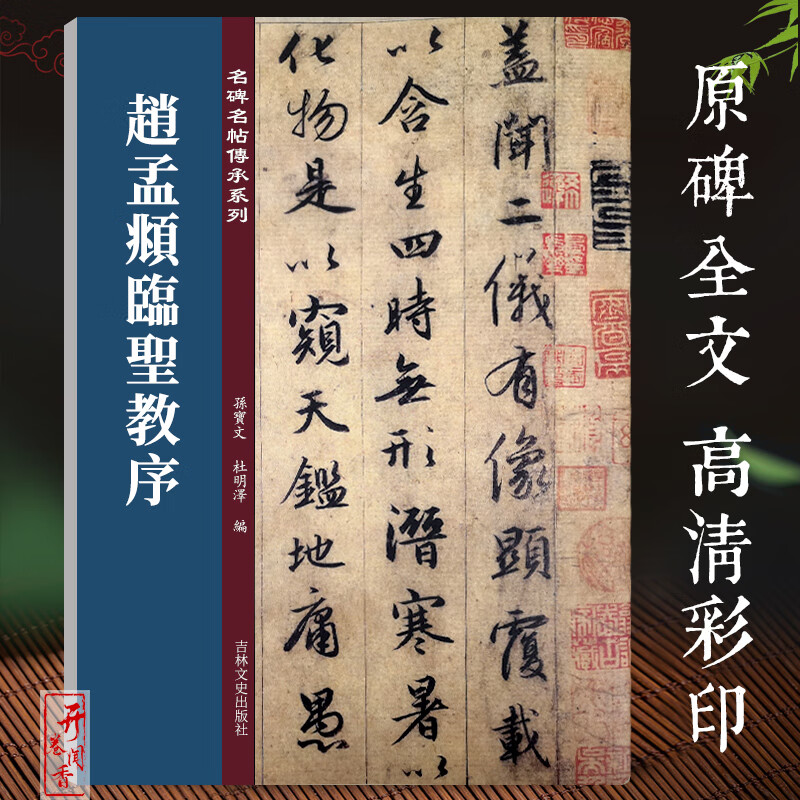 趙孟頫臨聖教序
名碑名帖傳承系列
孫寶文 杜明澤 編
吉林文史出版社
蓋聞二儀有像顯覆載
以含生四時無形潛寒暑以
化物是以窺天鑑地庸愚
原碑全文 高清彩印
开卷闻香